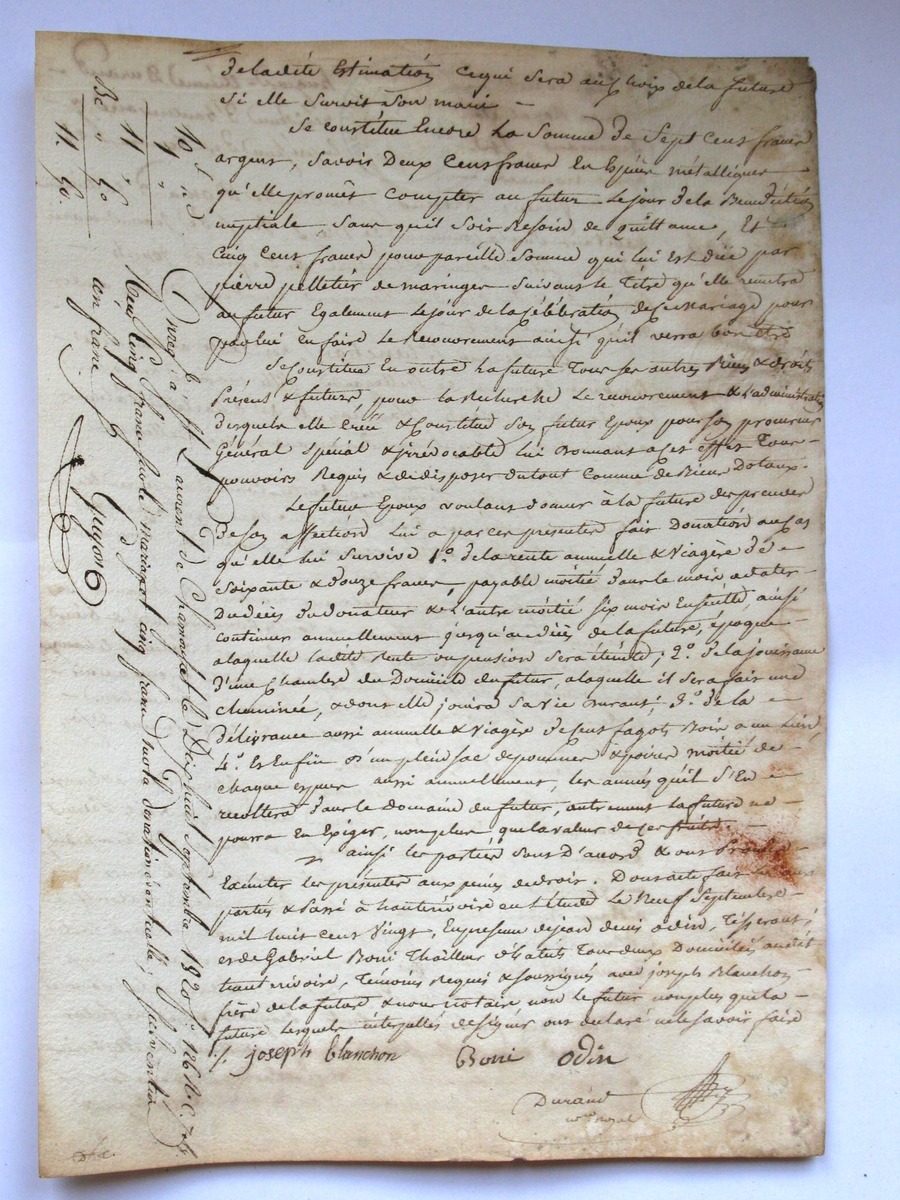 de ladite Estimation ce qui sera au choix de la future
si elle survit à son mari —
Se constitue Encore la Somme de Sept Cens francs
argent, Savoir Deux Cens francs En Espèces métalliques
qu'elle promêt compter au futur le jour de la Benediction
nuptiale sans qu'il soit Besoin de quittance, Et
Cinq Cens francs pour pareille Somme qui lui Est düe par
pierre pelletier de maringes suivant le Titre qu'elle remettra
au futur Egalement le jour de la Célébration de ce Mariage pour
par lui en faire le Recouvrement ainsi qu'il verra bon être
Se Constitue En outre la future Tous ses autres Biens & droits
Présens & futurs, pour la Recherche le recouvrement & l'administration
desquels elle Crée & Constitue son futur Epoux pour son procureur
Général spécial & irrévocable lui Donnant à Ces effets Tous
pouvoirs Requis & de disposer du tout Comme de Biens Dotaux.
Le futur Epoux voulant donner à la future des preuves
de son affection lui a par ces présentes fait Donation au Cas
qu'elle lui Survive 1°. de la rente annuelle & Viagère de
Soixante & douze francs, payable moitié dans le mois, à dater
Du décès du donateur & l'autre moitié Six mois Ensuite, ainsi
continuer annuellement jusqu'au décès de la future, époque
a laquelle ladite Rente ou pension sera éteinte; 2°. de la jouissance
d'une Chambre du Domicile du futur, a laquelle il sera fait une
cheminée, & dont elle jouira sa vie Durant; 3°. de la
Délivrance aussi annuelle & Viagère de fagots Bois
4°. Et Enfin d'un plein sac de pommes & poires moitié de
chaque espèce aussi annuellement, les années qu'il s'En
recoltera dans le domaine du futur, autrement la future ne
pourra En Exiger, non plus que la valeur de ces fruits. —
ainsi les parties sont D'accord & ont
Exécuter les présentes aux peines de droit. Dont acte fait
parties & Passé à hauterivoire en l'étude le Neuf Septembre
mil huit cens Vingt, En présence de jean denis odin, Tisserant,
et de Gabriel Borri Thailleur d'habits Tous deux Domiciliés audit
hauterivoire, Témoins Requis & soussignés avec joseph Blanchon
frère de la future & nous notaire non le futur non plus que la
future lesquels interpellés de signer ont declaré ne le savoir faire
joseph blanchon Borri odin
Durand
10
1
11
11. 60.
Enreg. à St Laurent de Chamousset le Dixhuit Septembre 1820
Reçu cinq francs sur le mariage & cinq francs sur la donation éventuelle,
un franc
Guyot